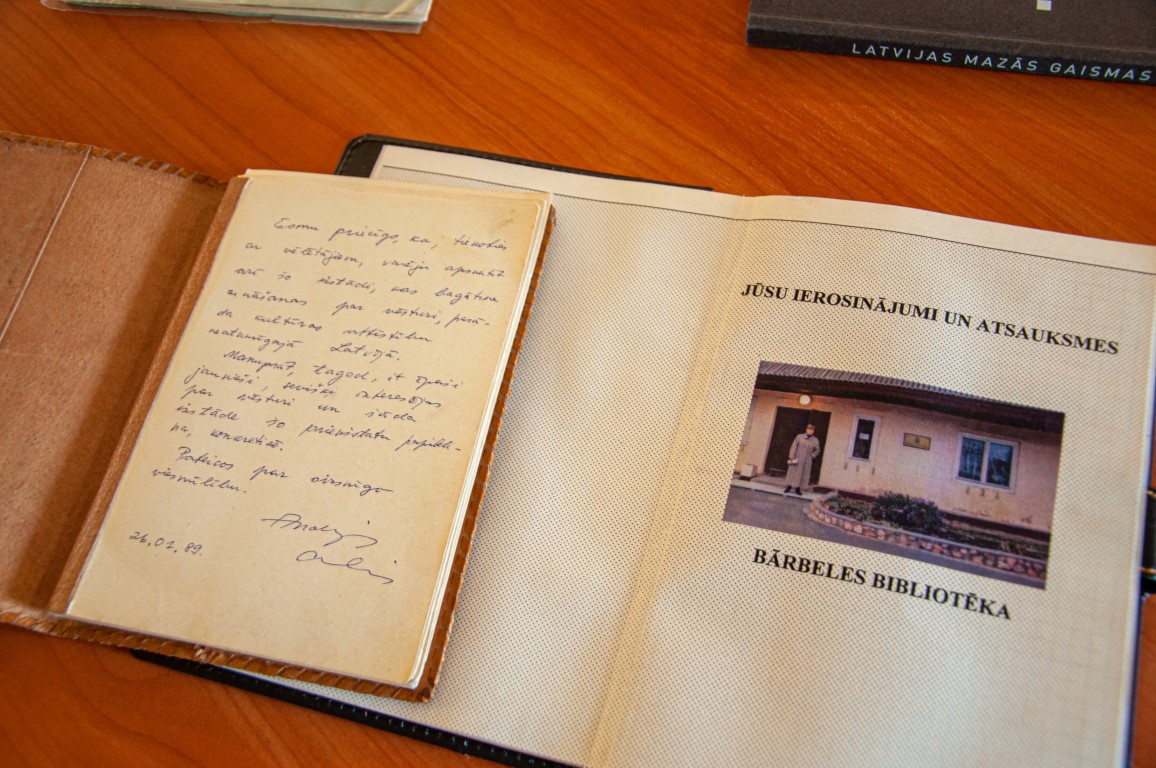 LATVIJAS MAZĀS GAISMAS
Esmu priecīgs, ka, tiekoties
ar vēlētājiem, varēju apskatīt
arī šo iestādi, kas bagātina
zināšanas par vēsturi, parā-
da kultūras attīstību
neatkarīgajā Latvijā.
Manuprāt, tagad, it īpaši
jaunieši, sevišķi interesējas
par vēsturi un šāda
iestāde šo priekšstatu papildi-
na, konkretizē.
Pateicos par sirsnīgo
viesmīlību.
26.01.89.
JŪSU IEROSINĀJUMI UN ATSAUKSMES
6
BĀRBELES BIBLIOTĒKA